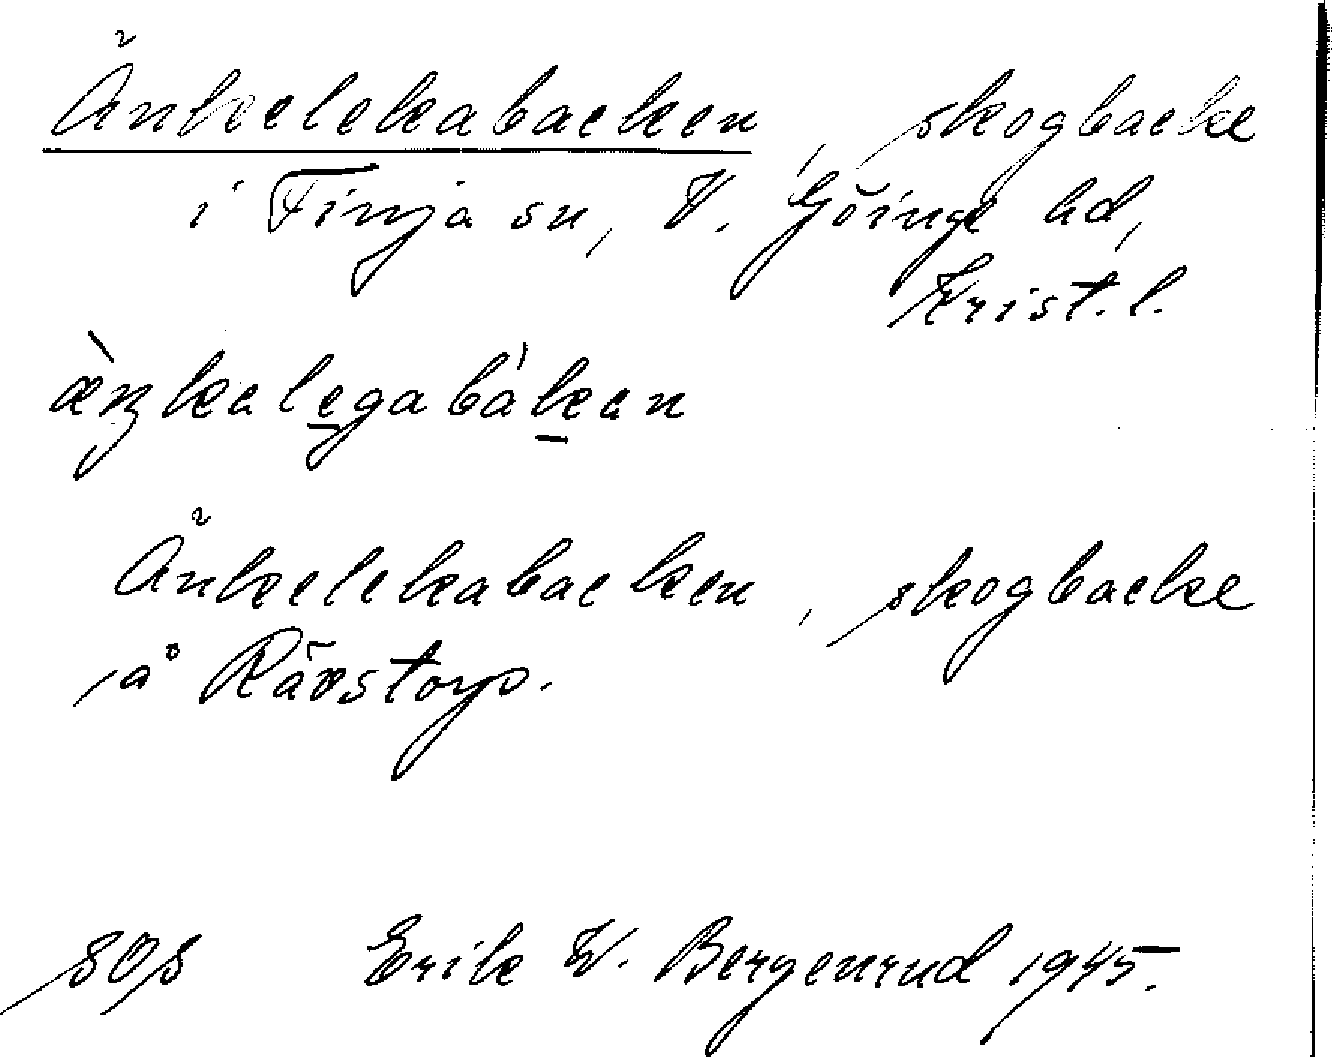 Änkelekabacken, skogbacke
i Finja sn, V. Göinge hd,
Krist. l.
Änkelekabacken, skogbacke
på Rävstorp.
Erik W. Bergenrud 1945.